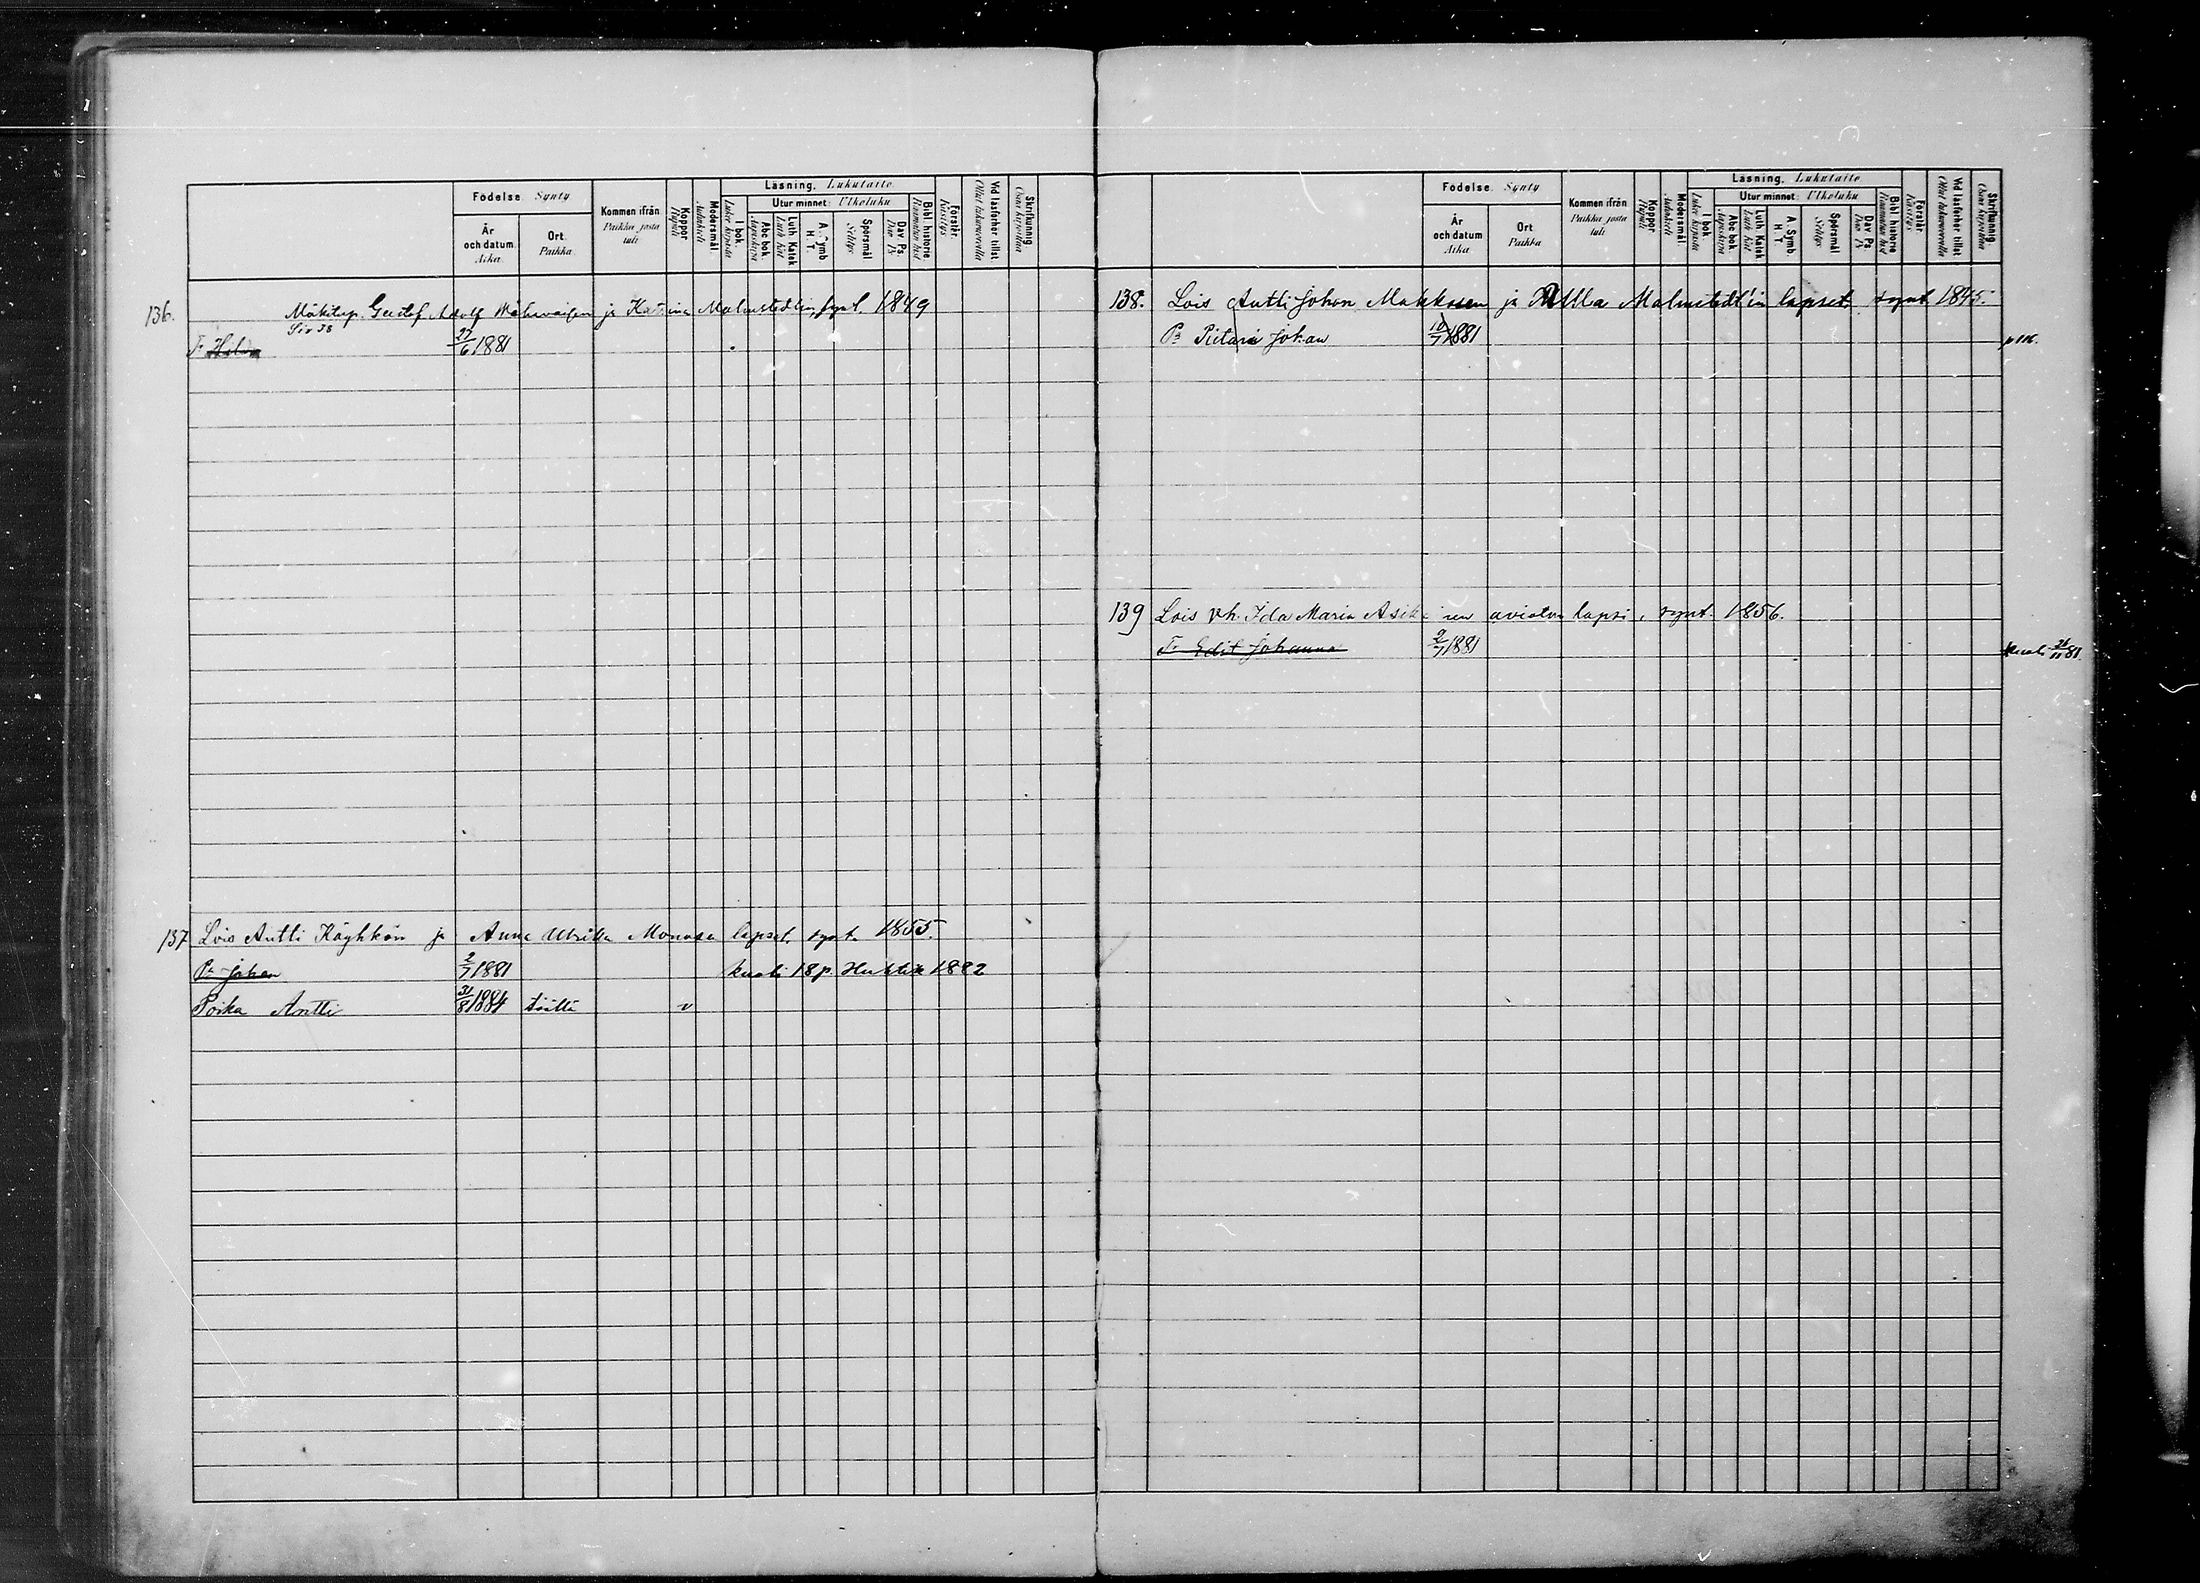 Födelse Synty
År och datum Aika
Ort. Paikka.
Kommen ifrån Paikka josta tuli
Koppor Rupuli
Modersmål. Äidinkieli
Läsning. Lukutaito
I bok. Lukee kirjasta
Utur minnet: Ulkoluku
Abc bok. Aapiskirja
Luth. Katek. Luth. kat.
A. Symb. H. T.
Spörsmål Selitys
Dav. Ps. Dav. Ps.
Bibl. historie Raamatun hist.
Förstår. Käsitys
Vid läsförhör tillst. Ollut lukuvuorolla
Skriftkunnig Osaa kirjoittaa
136. Mäkitup. Gustaf Adolf ja Katrina Malmstedtin synt. 1849
Siv 78
T. Hilda 27/6 1881
137 Lois Antti Käyhkön ja Anna Ulrika lapset, synt. 1855.
P. Johan 2/7 1881 kuoli 18 p. Huhtik 1882
Poika Antti 31/8 1884 täällä v
Födelse Synty
År och datum Aika
Ort Paikka
Kommen ifrån Paikka josta tuli
Koppor Rupuli
Modersmål. Äidinkieli
Läsning. Lukutaito
I bok. Lukee kirjasta
Utur minnet: Ulkoluku
Abc bok. Aapiskirja
Luth. Katek. Luth. kat.
A. Symb. H. T.
Spörsmål Selitys
Dav. Ps. Dav. Ps.
Bibl. historie Raamatun hist.
Förstår Käsitys
Vid läsförhör tillst. Ollut lukuvuorolla
Skriftkunnig Osaa kirjoittaa
138. Lois Antti Johan Makkosen ja Ulla Malmstedt'in lapset synt. 1845.
P. Pietari Johan 10/7 1881
139 Lois vh. Ida Maria Asikainen avioton lapsi, synt. 1856.
T. Edit Johanna 9/7 1881 kuoli 26/11 81.